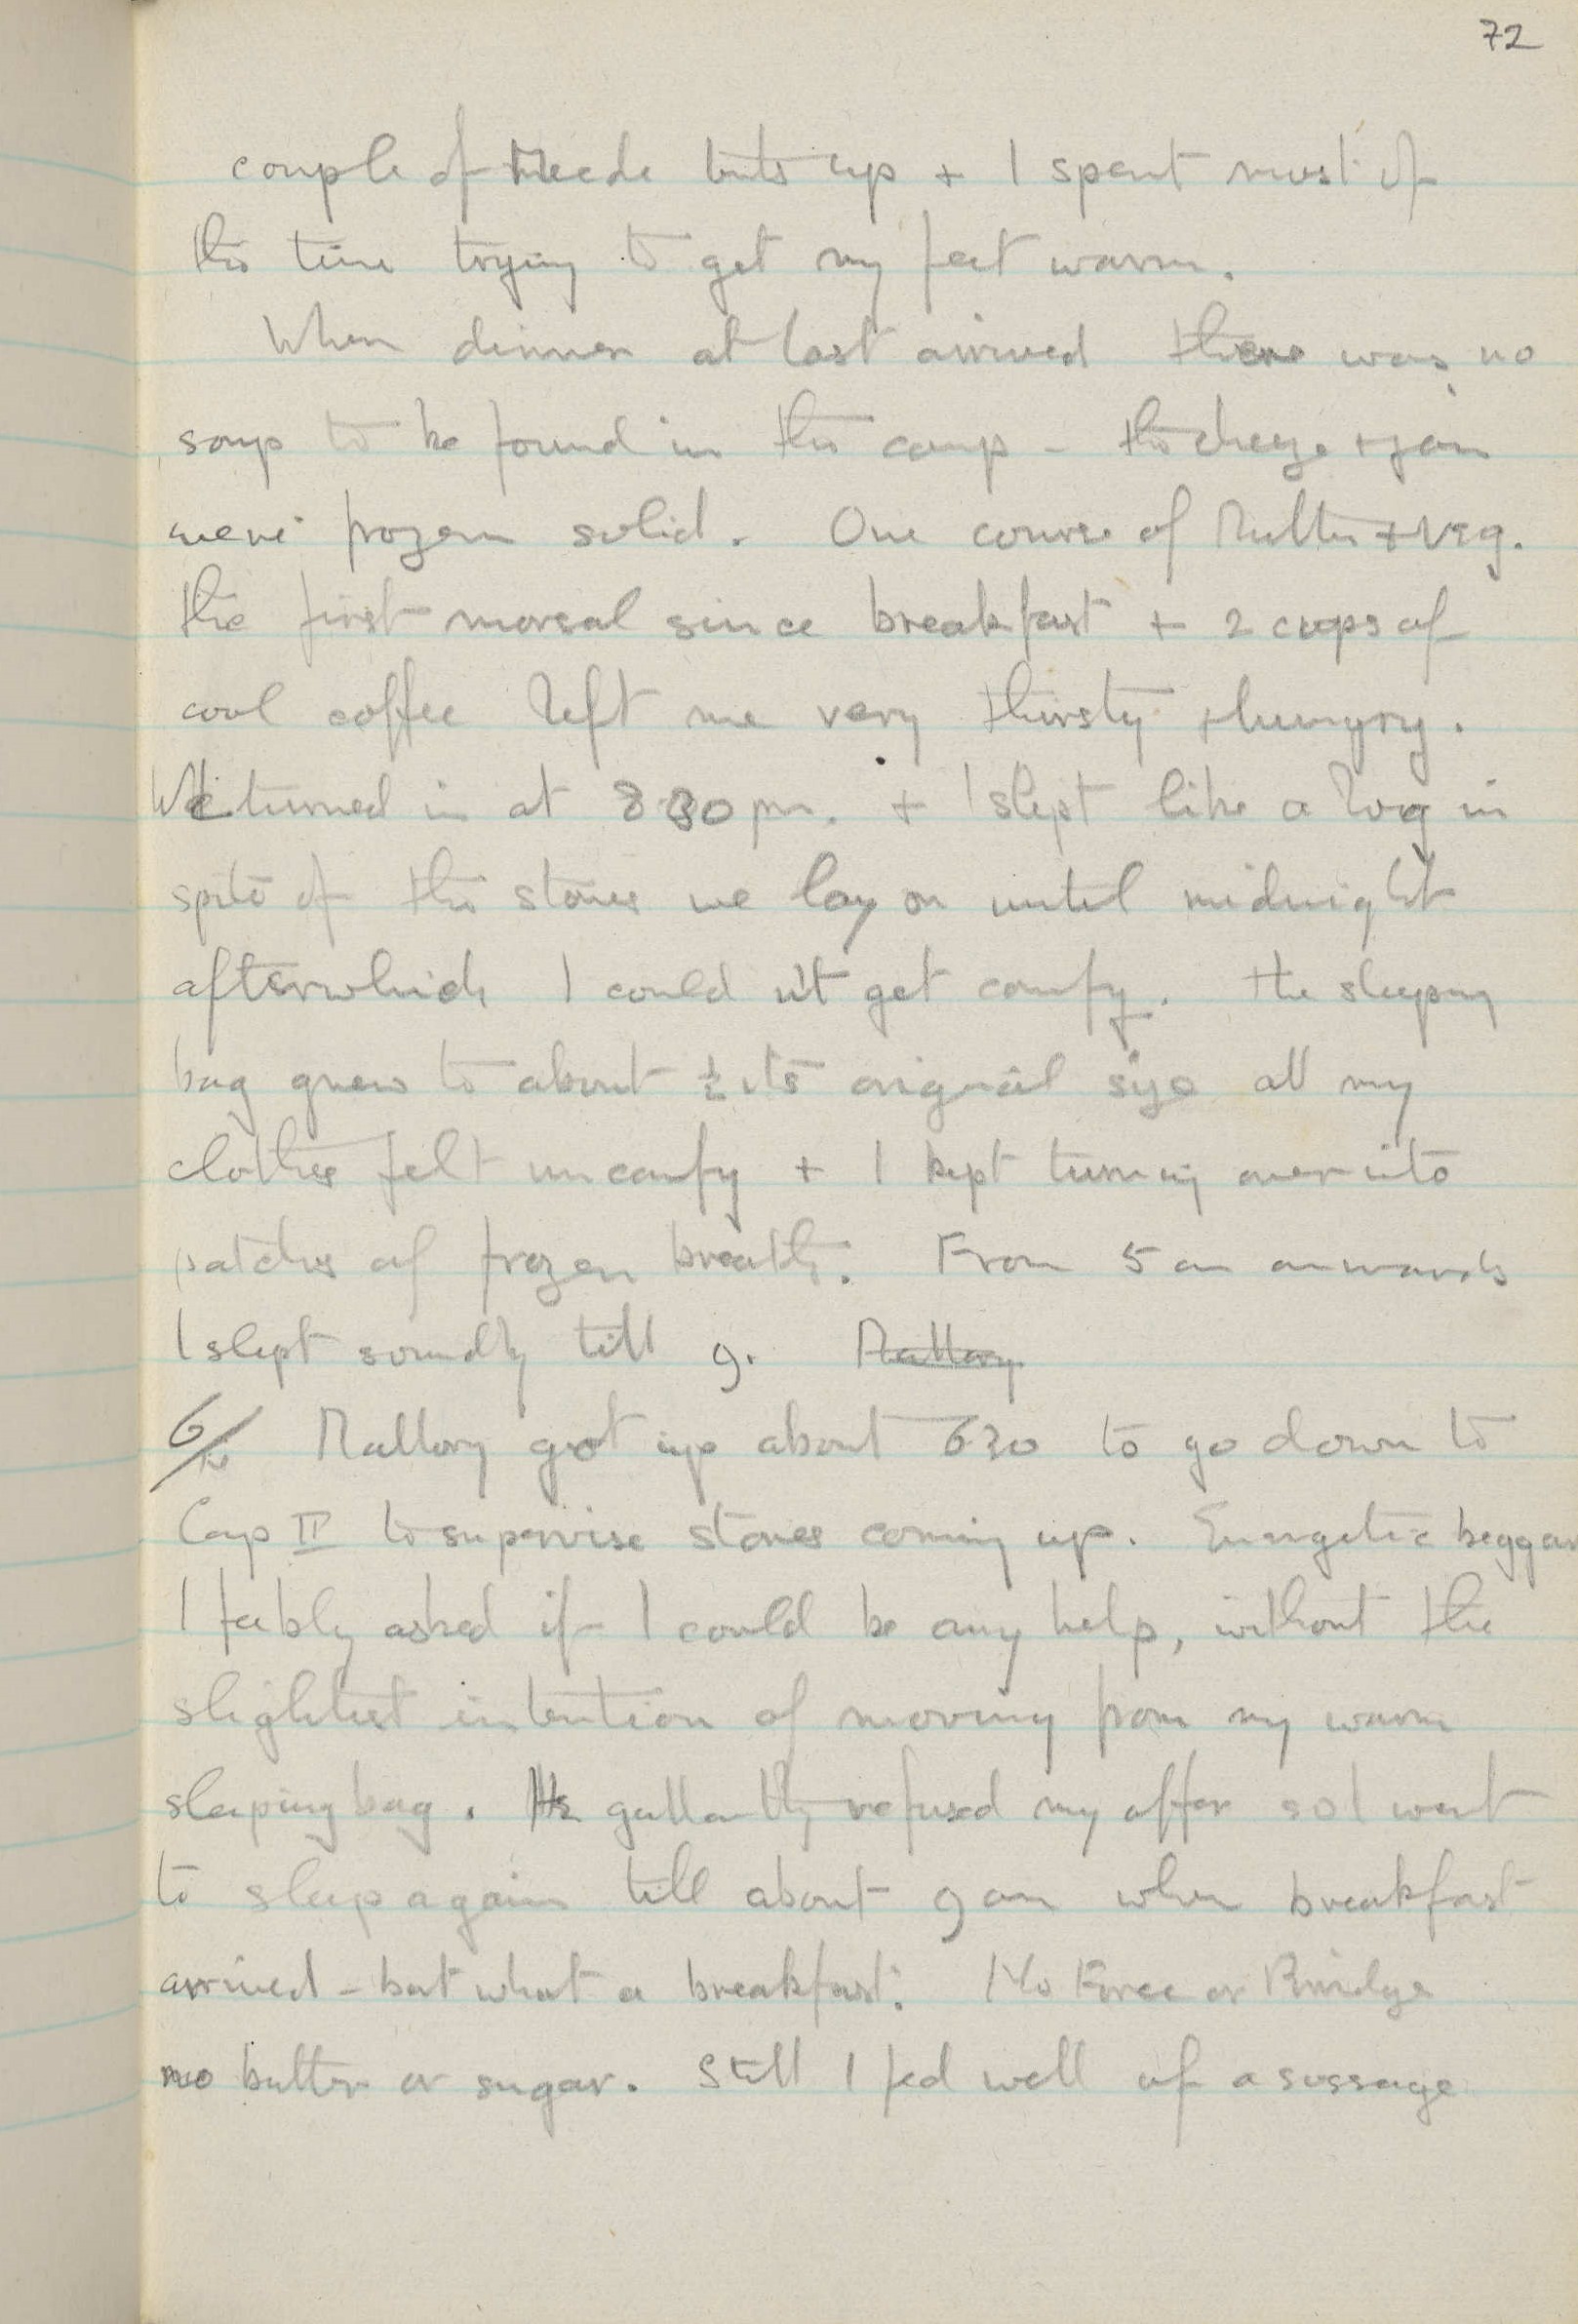 72
couple of Meade tents up + I spent most of
the time trying to get my feet warm.
When dinner at last arrived there was no
soup to be found in the camp - the cheese + jam
were frozen solid. One course of Mutton + veg.
the first morsal since breakfast + 2 cups of
cool coffee left me very thirsty + hungry.
We turned in at 8.30 pm. + I slept like a log in
spite of the stones we lay on until midnight
afterwhich I could n't get comfy. The sleeping
bag grew to about ½ its original size all my
clothes felt uncomfy + I kept turning over into
patches of frozen breath. From 5 am onwards
I slept soundly till 9. Mallory
6/ Mallory got up about 630 to go down to
Camp II to supervise stores coming up. Energetic beggar
I feebly asked if I could be any help, without the
slightest intention of moving from my warm
sleeping bag. He gallantly refused my offer so I went
to sleep again till about 9 am when breakfast
arrived - but what a breakfast. No Force or Porridge
no butter or sugar. Still I fed well of a sossage